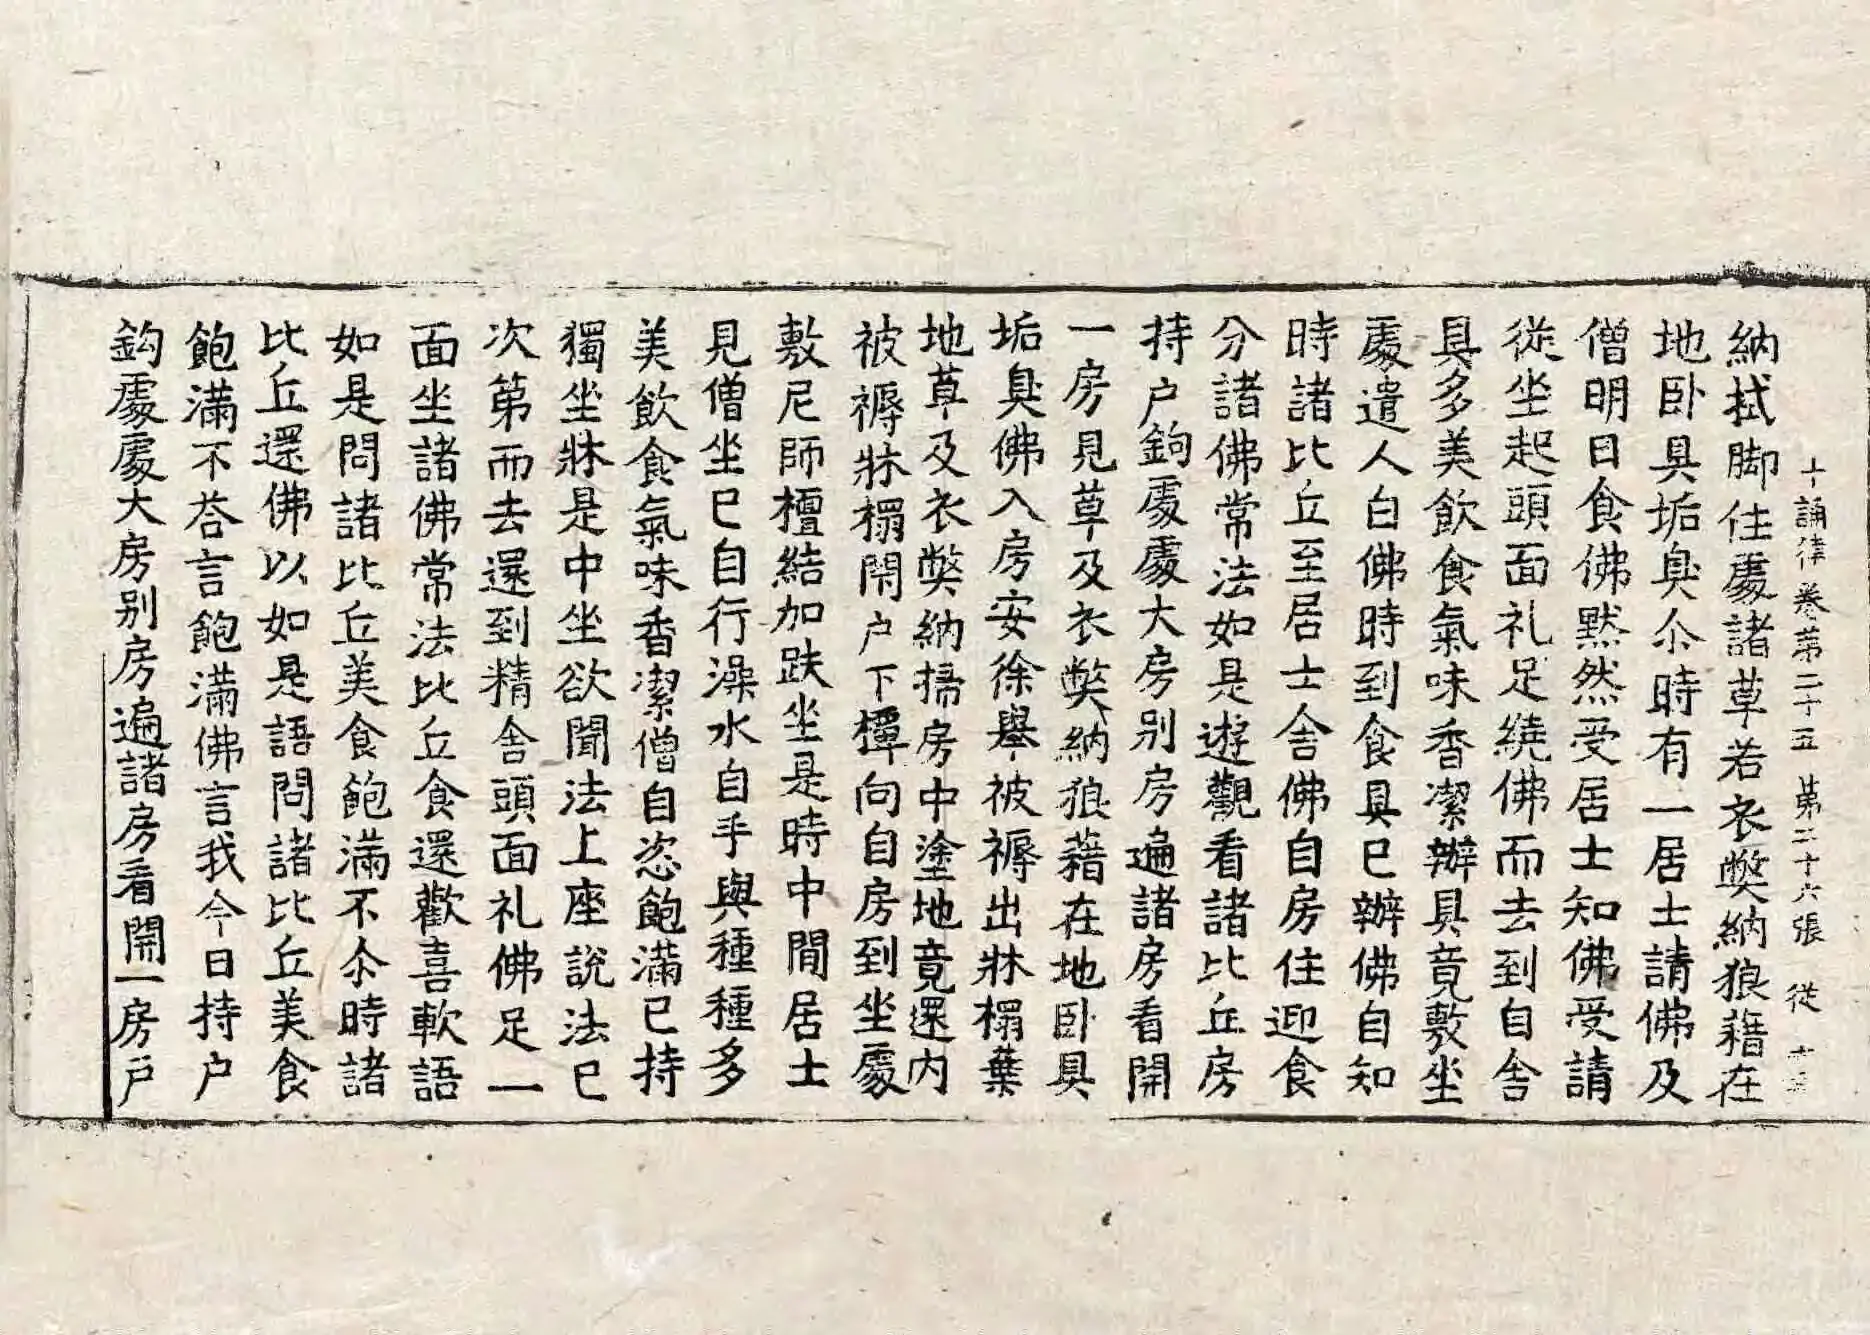 十誦律卷第二十五 第二十六張 從
納拭脚住處諸草若衣弊納狼藉在
地卧具垢臭尒時有一居士請佛及
僧明日食佛黙然受居士知佛受請
從坐起頭面礼足繞佛而去到自舎
具多美飲食氣味香潔辦具竟敷坐
處遣人白佛時到食具已辦佛自知
時諸比丘至居士舎佛自房住迎食
分諸佛常法如是遊觀看諸比丘房
持户鉤處處大房别房遍諸房看開
一房見草及衣弊納狼藉在地卧具
垢臭佛入房安徐舉被褥出牀榻葉
地草及衣弊納掃房中塗地竟還内
被褥牀榻閇户下橝向自房到坐處
敷尼師檀結加趺坐是時中間居士
見僧坐已自行澡水自手與種種多
美飲食氣味香潔僧自恣飽滿已持
獨坐牀是中坐欲聞法上座説法已
次第而去還到精舎頭面礼佛足一
面坐諸佛常法比丘食還歡喜軟語
如是問諸比丘美食飽滿不尒時諸
比丘還佛以如是語問諸比丘美食
飽滿不荅言飽滿佛言我今日持户
鈎處處大房别房遍諸房看開一房户